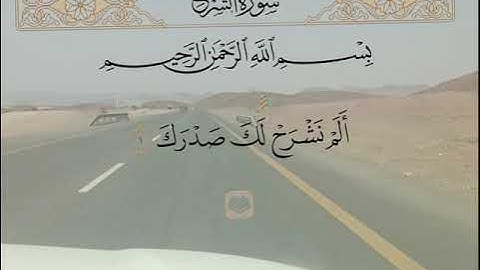 سورة الشرح
بِسْمِ ٱللَّهِ ٱلرَّحْمَٰنِ ٱلرَّحِيمِ
أَلَمْ نَشْرَحْ لَكَ صَدْرَكَ ١